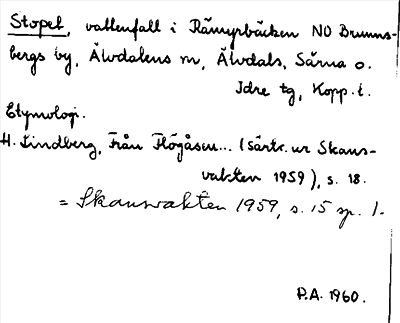 Stopet, vattenfall i Rämyrbäcken NO Brunns-
bergs by, Älvdalens sn, Älvdals, Särna o.
Idre tg, Kopp. l.
Etymologi.
H. Lindberg, Från Flögåsen... (Särtr. ur Skans-
vakten 1959), s. 18.
= Skansvakten 1959, s. 15 sp. 1.
P.A. 1960.